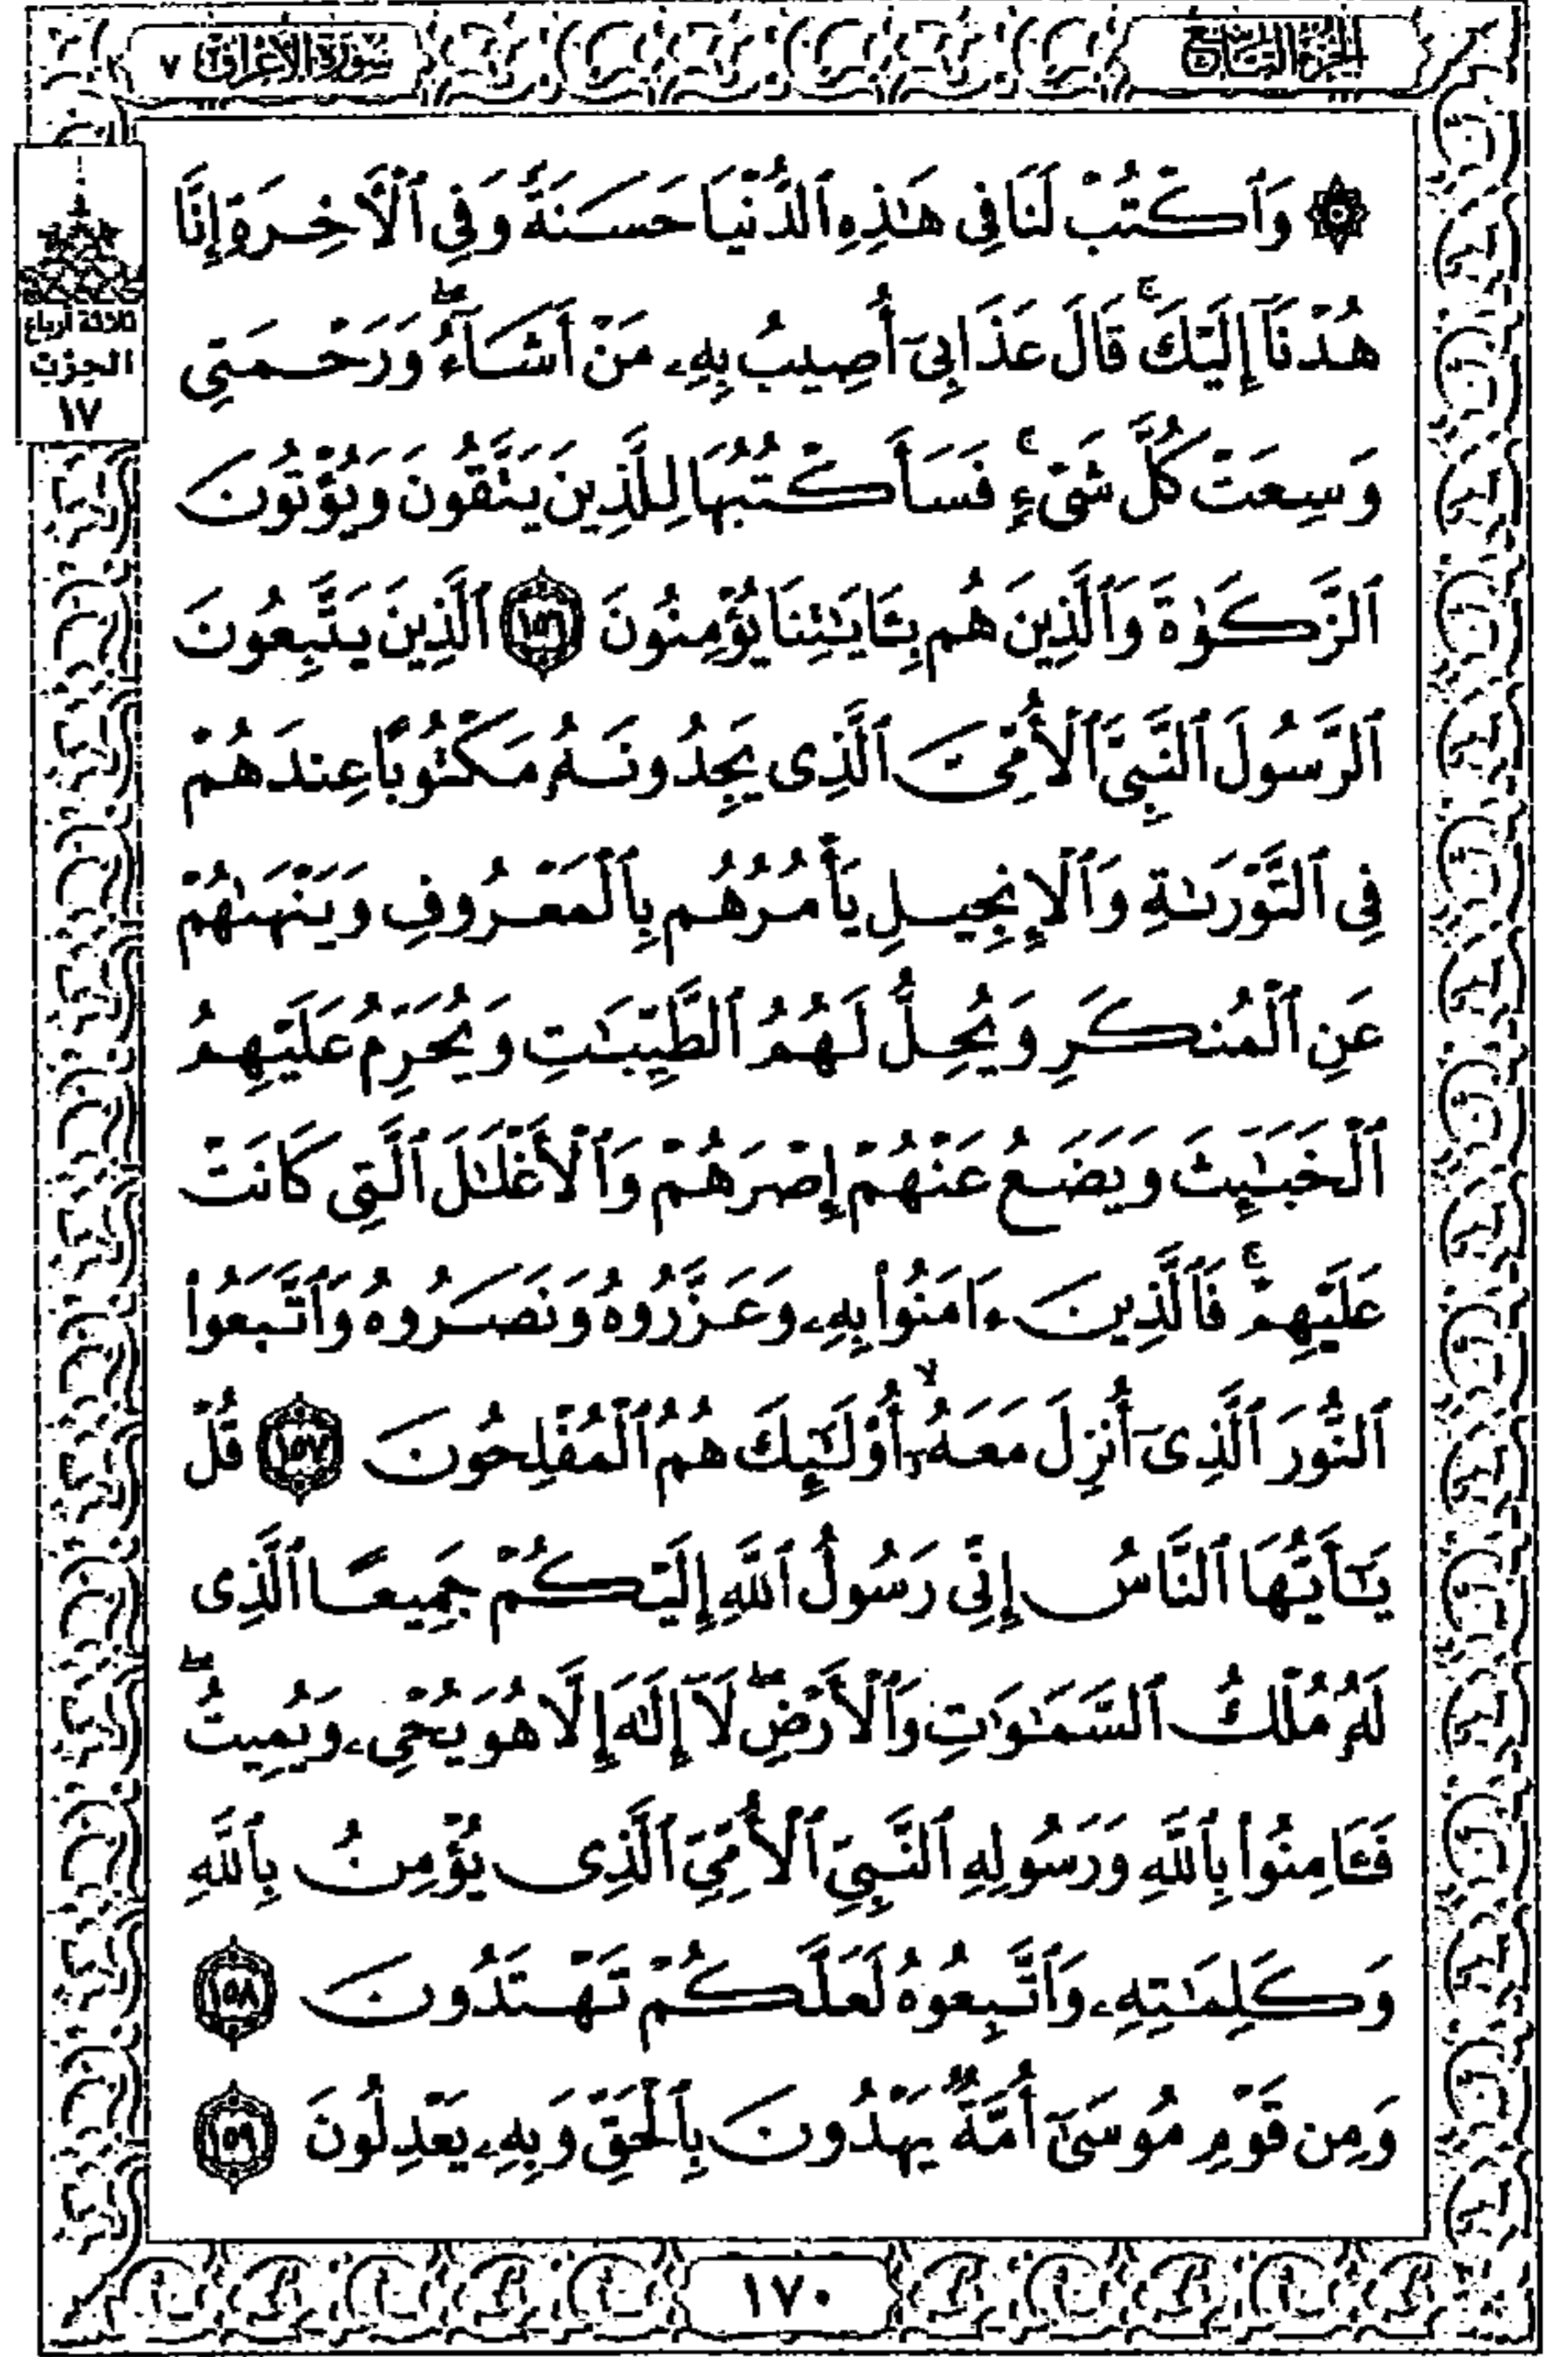 الجزء التاسع
سورة الأعراف ٧
۞ وَٱكْتُبْ لَنَا فِى هَٰذِهِ ٱلدُّنْيَا حَسَنَةً وَفِى ٱلْأَخِرَةِ إِنَّا
هُدْنَآ إِلَيْكَ ۚ قَالَ عَذَابِىٓ أُصِيبُ بِهِۦ مَنْ أَشَآءُ ۖ وَرَحْمَتِى
وَسِعَتْ كُلَّ شَىْءٍ ۚ فَسَأَكْتُبُهَا لِلَّذِينَ يَتَّقُونَ وَيُؤْتُونَ
ٱلزَّكَوٰةَ وَٱلَّذِينَ هُم بِـَٔايَٰتِنَا يُؤْمِنُونَ ١٥٦ ٱلَّذِينَ يَتَّبِعُونَ
ٱلرَّسُولَ ٱلنَّبِىَّ ٱلْأُمِّىَّ ٱلَّذِى يَجِدُونَهُۥ مَكْتُوبًا عِندَهُمْ
فِى ٱلتَّوْرَىٰةِ وَٱلْإِنجِيلِ يَأْمُرُهُم بِٱلْمَعْرُوفِ وَيَنْهَىٰهُمْ
عَنِ ٱلْمُنكَرِ وَيُحِلُّ لَهُمُ ٱلطَّيِّبَٰتِ وَيُحَرِّمُ عَلَيْهِمُ
ٱلْخَبَٰٓئِثَ وَيَضَعُ عَنْهُمْ إِصْرَهُمْ وَٱلْأَغْلَٰلَ ٱلَّتِى كَانَتْ
عَلَيْهِمْ ۚ فَٱلَّذِينَ ءَامَنُوا۟ بِهِۦ وَعَزَّرُوهُ وَنَصَرُوهُ وَٱتَّبَعُوا۟
ٱلنُّورَ ٱلَّذِىٓ أُنزِلَ مَعَهُۥٓ ۙ أُو۟لَٰٓئِكَ هُمُ ٱلْمُفْلِحُونَ ١٥٧ قُلْ
يَٰٓأَيُّهَا ٱلنَّاسُ إِنِّى رَسُولُ ٱللَّهِ إِلَيْكُمْ جَمِيعًا ٱلَّذِى
لَهُۥ مُلْكُ ٱلسَّمَٰوَٰتِ وَٱلْأَرْضِ ۖ لَآ إِلَٰهَ إِلَّا هُوَ يُحْىِۦ وَيُمِيتُ ۖ
فَـَٔامِنُوا۟ بِٱللَّهِ وَرَسُولِهِ ٱلنَّبِىِّ ٱلْأُمِّىِّ ٱلَّذِى يُؤْمِنُ بِٱللَّهِ
وَكَلِمَٰتِهِۦ وَٱتَّبِعُوهُ لَعَلَّكُمْ تَهْتَدُونَ ١٥٨
وَمِن قَوْمِ مُوسَىٰٓ أُمَّةٌ يَهْدُونَ بِٱلْحَقِّ وَبِهِۦ يَعْدِلُونَ ١٥٩
ثلاثة أرباع
الحزب
١٧
١٧٠